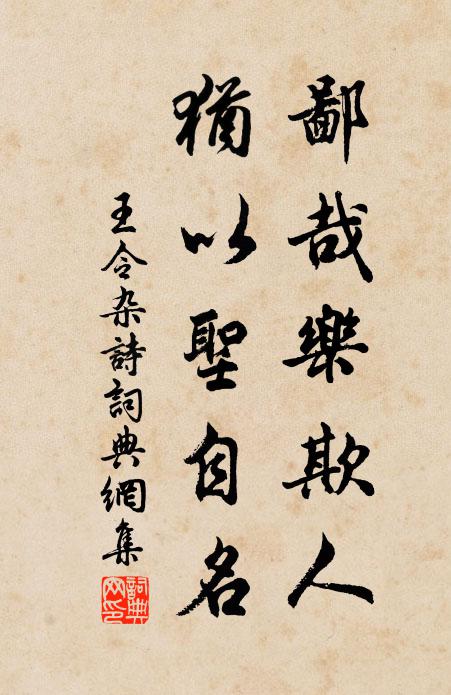 鄙哉樂欺人
猶以聖自名
王令杂詩詞典網集
詞典網印